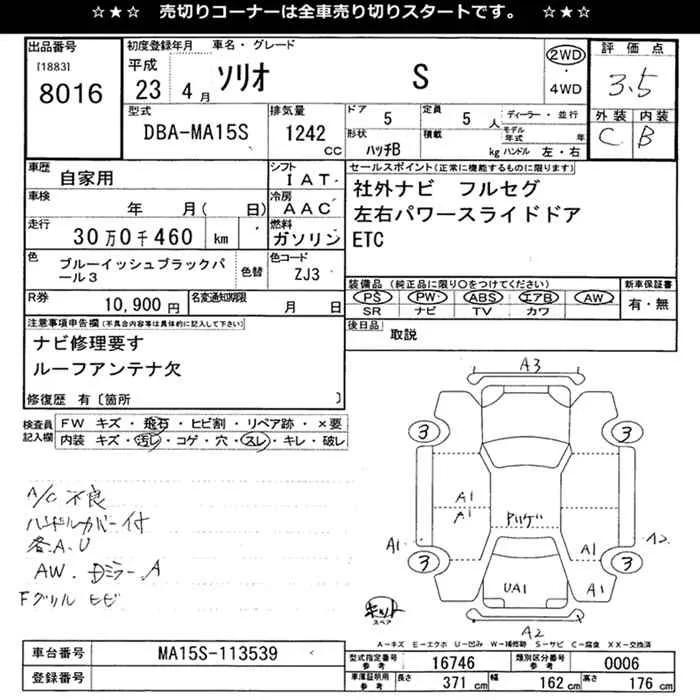 ☆★☆ 売切りコーナーは全車売り切りスタートです。 ☆★☆
出品番号
[1883]
8016
初度登録年月
平成
23年 4月
車名・グレード
ソリオ S
2WD
・
4WD
評価点
3.5
外装 内装
C B
型式
DBA-MA15S
排気量
1242
CC
ドア 5
定員 5 人
ディーラー・並行
形状 ハッチB
積載 kg
モデル年式 年
ハンドル 左・右
車歴 自家用
シフト IAT
車検 年 月( 日)
冷房 AAC
走行 30万0千460 km
燃料 ガソリン
色 ブルーイッシュブラックパール3
色替
色コード ZJ3
R券 10,900円
名変通知期限 月 日
セールスポイント(正常に機能するものに限ります)
社外ナビ フルセグ
左右パワースライドドア
ETC
装備品 (純正品に限り○をつけてください)
PS PW ABS エアB AW
SR ナビ TV カワ
新車保証書
有・無
後日品 取説
注意事項申告欄(不具合内容等は具体的に記入して下さい)
ナビ修理要す
ルーフアンテナ欠
修復歴 有〔箇所 〕
検査員記入欄
FW キズ・飛石・ヒビ割・リペア跡・×要
内装 キズ・汚レ・コゲ・穴・スレ・キレ・破レ
A/C不良
ハンドルカバー付
各A.U
AW.Dミラー.A
Fグリル ヒビ
A3
3
3
A1
A1
A1
A2
A1
3
3
UA1
A1
A2
キット
スペア
A-キズ E-エクボ U-凹み W-補修跡 S-サビ C-腐食 XX-交換済
車台番号 MA15S-113539
登録番号
型式指定番号 参考 16746
類別区分番号 参考 0006
車庫証明用 参考
長さ 371 cm
幅 162 cm
高さ 176 cm